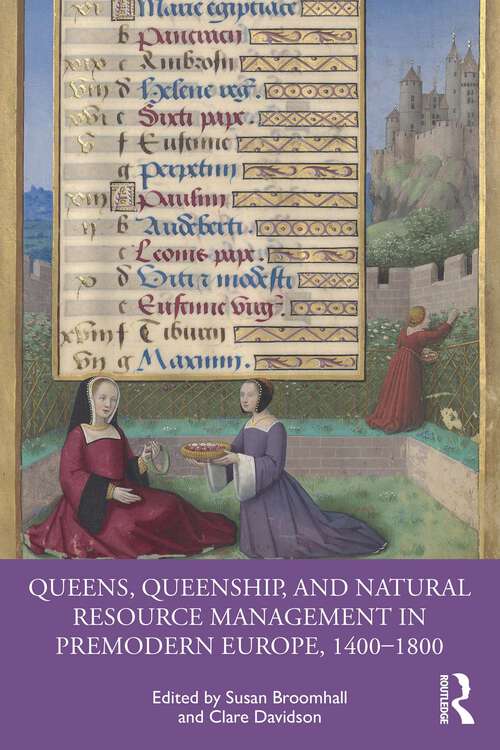 Marie egiptiace
b Pancracii
xvi c Ambrosii
v d Helene reg.
e Sixti pape.
f Eufemie
g Perpetuii
Paulini
b Audeberti.
c Leonis pape.
x d Viti z modesti
e Eufemie virg.
xviii f Tiburcii
vii g Maximi.
QUEENS, QUEENSHIP, AND NATURAL
RESOURCE MANAGEMENT IN
PREMODERN EUROPE, 1400–1800
Edited by Susan Broomhall
and Clare Davidson
ROUTLEDGE